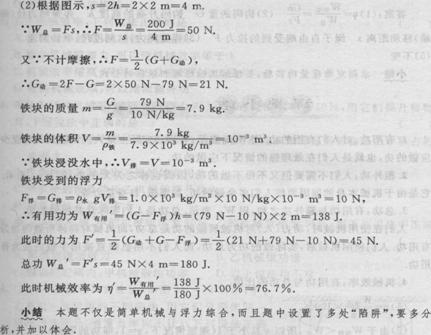 (2)根据图示,s=2h=2×2 m=4 m.
∵W总=Fs,∴F=W总/s=200 J/4 m=50 N.
又∵不计摩擦,∴F=1/2(G+G动),
∴G动=2F-G=2×50 N-79 N=21 N.
铁块的质量 m=G/g=79 N/10 N/kg=7.9 kg.
铁块的体积 V=m/ρ铁=7.9 kg/7.9×10³ kg/m³=10⁻³ m³.
∵铁块浸没水中,∴V排=V=10⁻³ m³,
铁块受到的浮力
F浮=G排=ρ水 gV排=1.0×10³ kg/m³×10 N/kg×10⁻³ m³=10 N,
∴有用功为 W有用′=(G-F浮)h=(79 N-10 N)×2 m=138 J.
此时的力为 F′=1/2(G动+G-F浮)=1/2(21 N+79 N-10 N)=45 N.
总功 W总′=F′s=45 N×4 m=180 J.
此时机械效率为 η′=W有用′/W总′=138 J/180 J×100%=76.7%.
小结 本题不仅是简单机械与浮力综合,而且题中设置了多处“陷阱”,要多分
析,并加以体会.